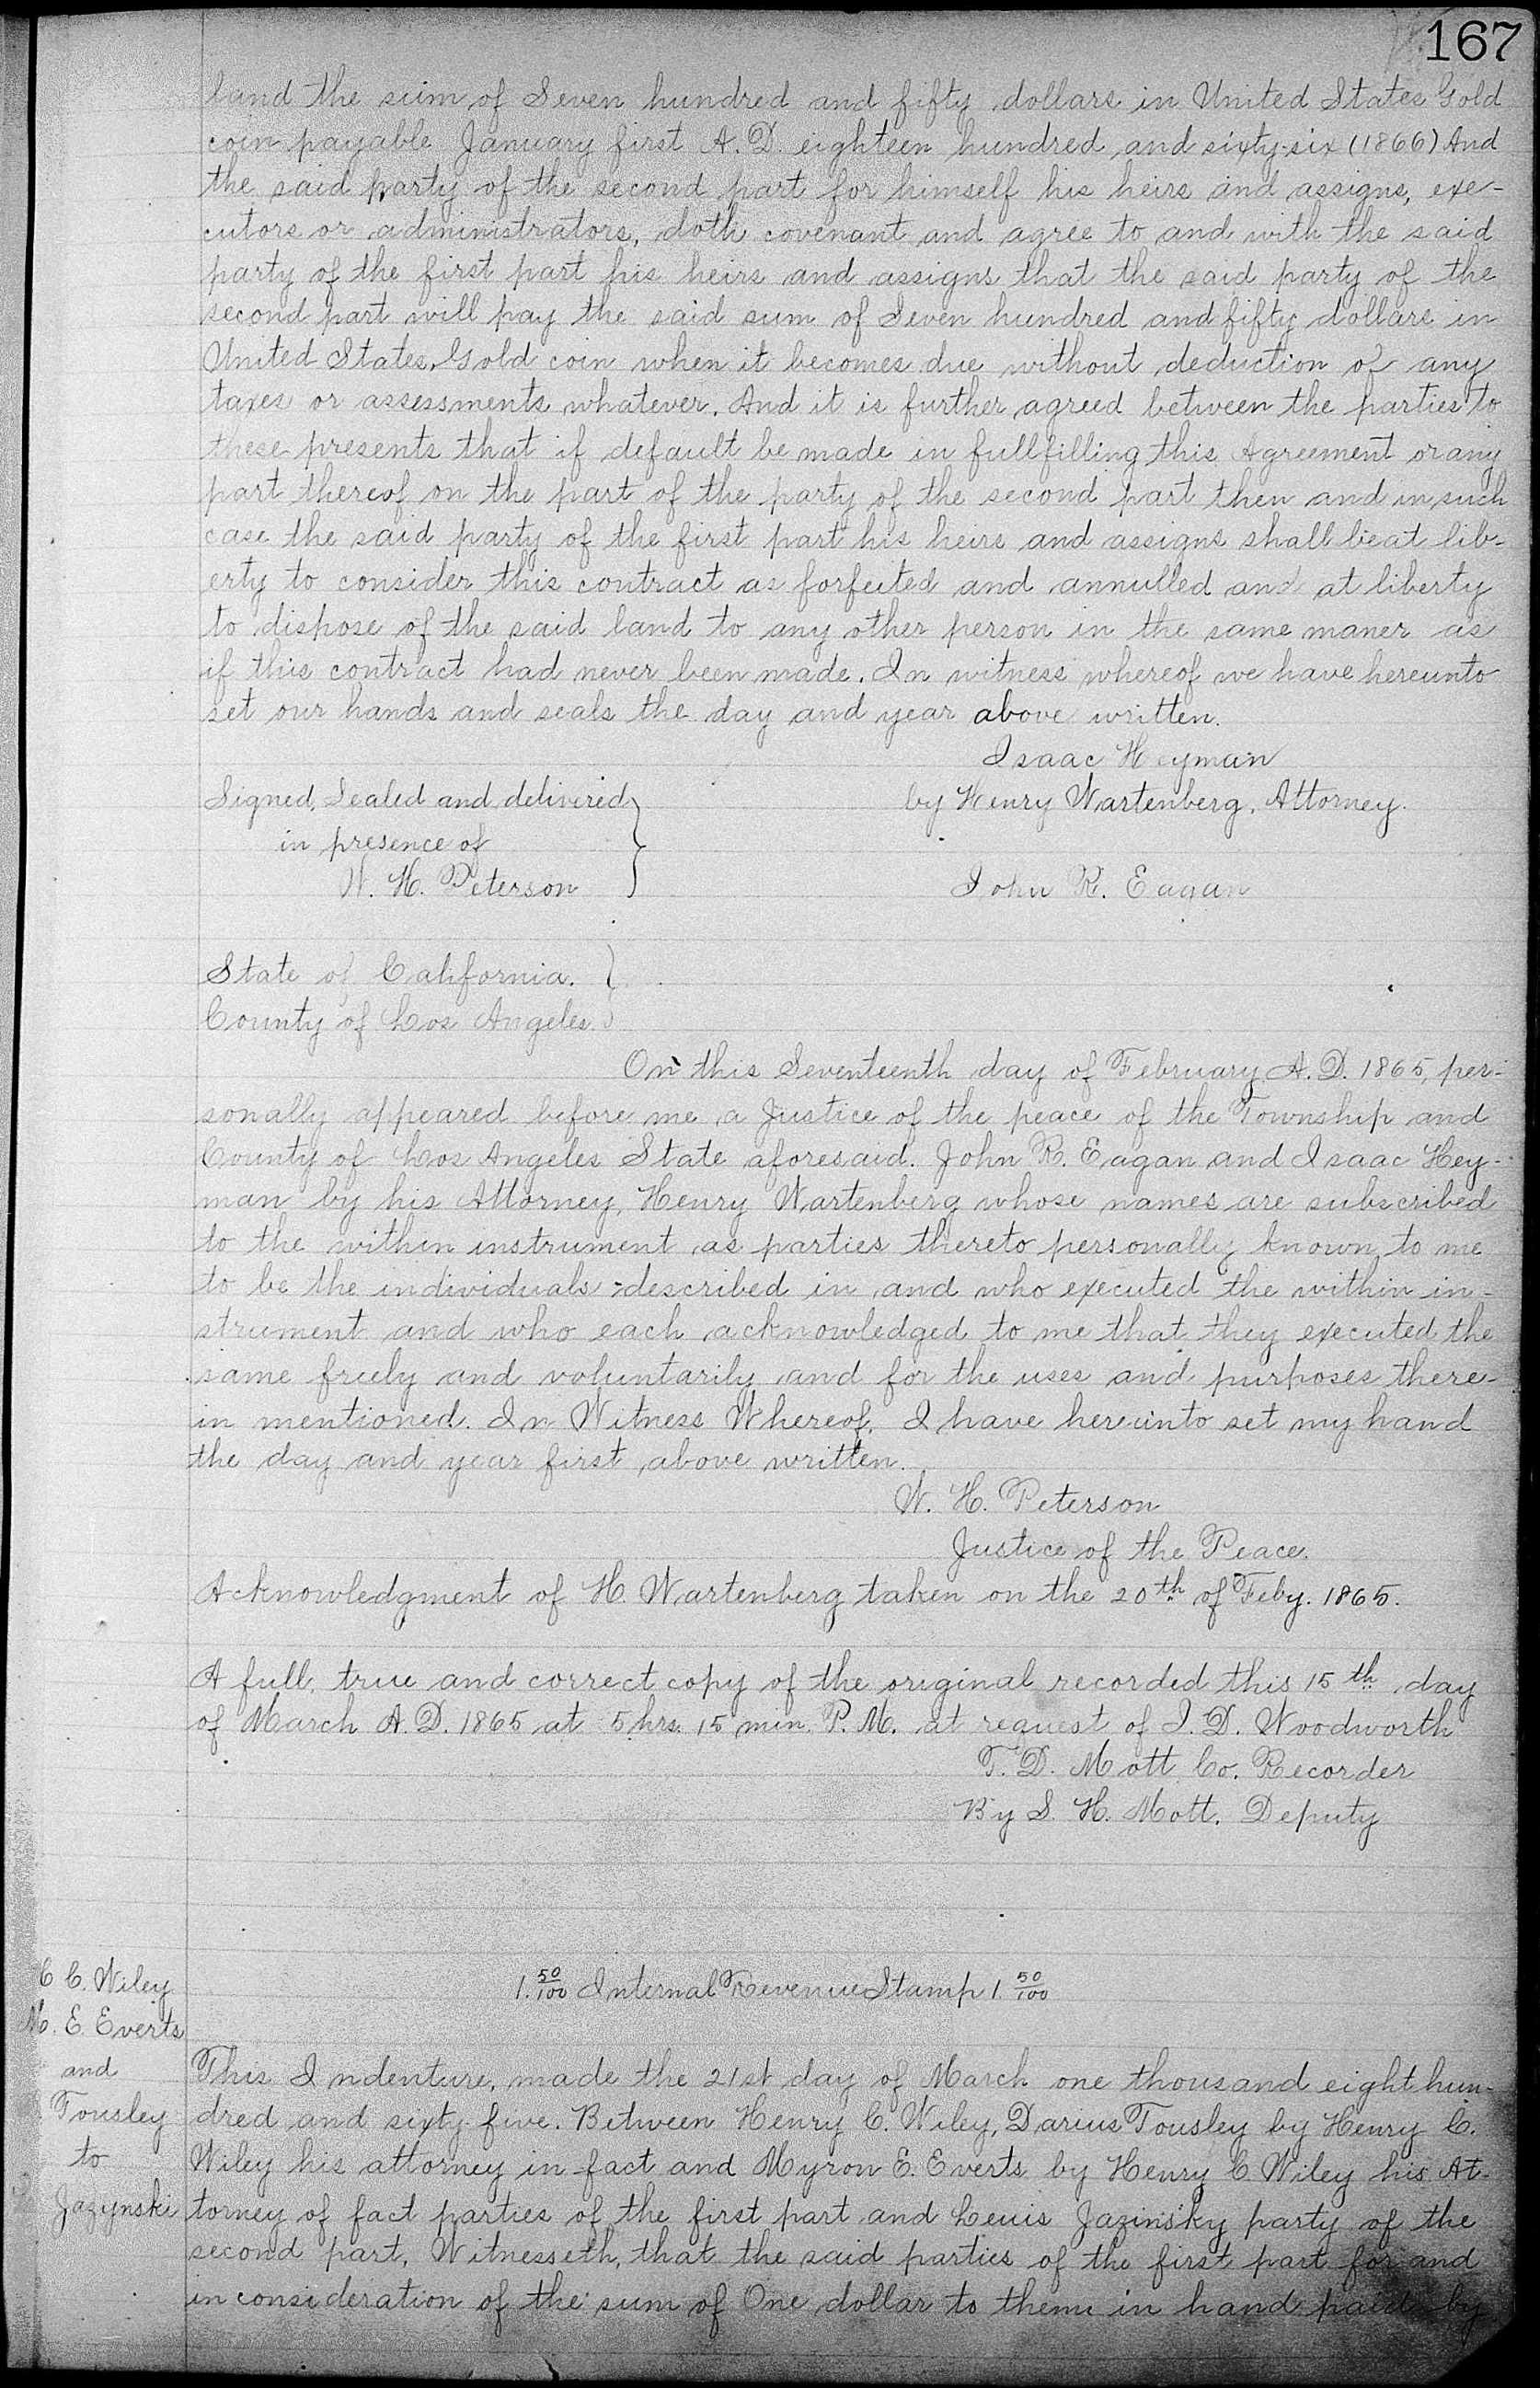 167
land the sum of Seven hundred and fifty dollars in United States Gold
coin payable January first A. D. eighteen hundred and sixty-six (1866) And
the said party of the second part for himself his heirs and assigns, exe-
cutors or administrators, doth covenant and agree to and with the said
party of the first part his heirs and assigns that the said party of the
second part will pay the said sum of Seven hundred and fifty dollars in
United States Gold coin when it becomes due without deduction of any
taxes or assessments whatever. And it is further agreed between the parties to
these presents that if default be made in fullfilling this Agreement or any
part thereof on the part of the party of the second part then and in such
case the said party of the first part his heirs and assigns shall be at lib-
erty to consider this contract as forfeited and annulled and at liberty
to dispose of the said land to any other person in the same maner as
if this contract had never been made. In witness whereof we have hereunto
set our hands and seals the day and year above written.
Isaac Heyman
Signed, Sealed and delivered by Henry Wartenberg, Attorney.
in presence of
W. H. Peterson John R. Eagan
State of California.
County of Los Angeles
On this Seventeenth day of February A. D. 1865, per-
sonally appeared before me a Justice of the peace of the Township and
County of Los Angeles State aforesaid. John R. Eagan and Isaac Hey-
man by his Attorney, Henry Wartenberg whose names are subscribed
to the within instrument as parties thereto personally known to me
to be the individuals described in and who executed the within in-
strument and who each acknowledged to me that they executed the
same freely and voluntarily and for the uses and purposes there-
in mentioned. In Witness Whereof, I have hereunto set my hand
the day and year first above written.
W. H. Peterson
Justice of the Peace.
Acknowledgment of H. Wartenberg taken on the 20th of Feby. 1865.
A full, true and correct copy of the original recorded this 15th day
of March A. D. 1865 at 5 hrs. 15 min. P. M. at request of I. D. Woodworth
T. D. Mott Co. Recorder
By S. H. Mott. Deputy
C C. Wiley
M. E. Everts
and
Tousley
to
Jazynski
1.50/100 Internal Revenue Stamp 1.50/100
This Indenture, made the 21st day of March one thousand eight hun-
dred and sixty five. Between Henry C. Wiley, Darius Tousley by Henry C.
Wiley his attorney in fact and Myron E. Everts by Henry C Wiley his At-
torney of fact parties of the first part and Leuis Jazinsky party of the
second part, Witnesseth, that the said parties of the first part for and
in consideration of the sum of One dollar to them in hand paid by